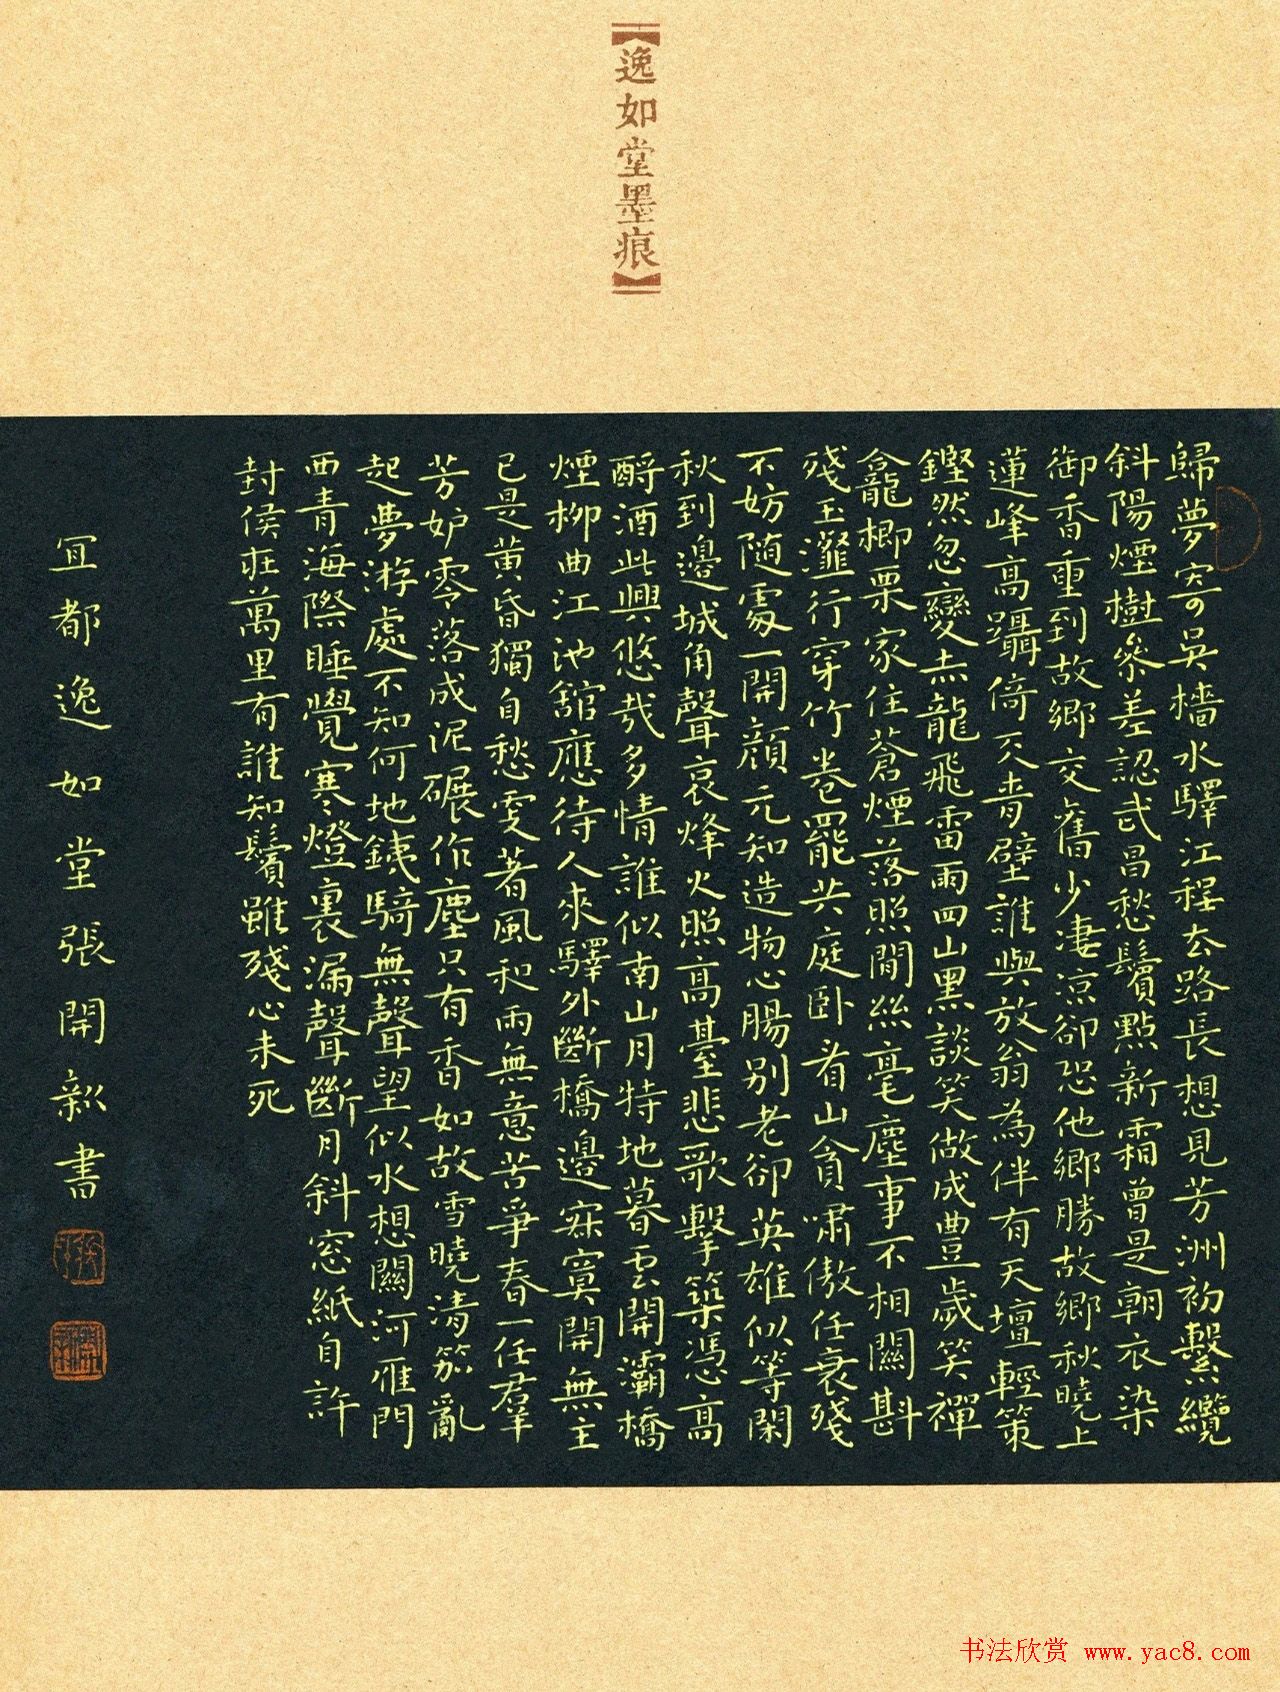 【逸如堂墨痕】
歸夢寄吳檣水驛江程去路長想見芳洲初繫纜
斜陽煙樹參差認武昌愁鬢點新霜曾是朝衣染
御香重到故鄉交舊少淒涼卻恐他鄉勝故鄉秋曉上
蓮峰高躡倚天青壁誰與放翁為伴有天壇輕策
鏗然忽變赤龍飛雷雨四山黑談笑做成豐歲笑禪
龕榔栗家住蒼煙落照間絲毫塵事不相關斟
殘玉瀣行穿竹卷罷黃庭卧看山貪嘯傲任衰殘
不妨隨處一開顏元知造物心腸別老卻英雄似等閑
秋到邊城角聲哀烽火照高臺悲歌擊築憑高
酹酒此興悠哉多情誰似南山月特地暮雲開灞橋
煙柳曲江池館應待人來驛外斷橋邊寂寞開無主
已是黃昏獨自愁更著風和雨無意苦爭春一任羣
芳妒零落成泥碾作塵只有香如故雪曉清笳亂
起夢游處不知何地鐵騎無聲望似水想關河雁門
西青海際睡覺寒燈裏漏聲斷月斜窓紙自許
封侯在萬里有誰知鬢雖殘心未死
宜都逸如堂張開新書
书法欣赏 www.yac8.com